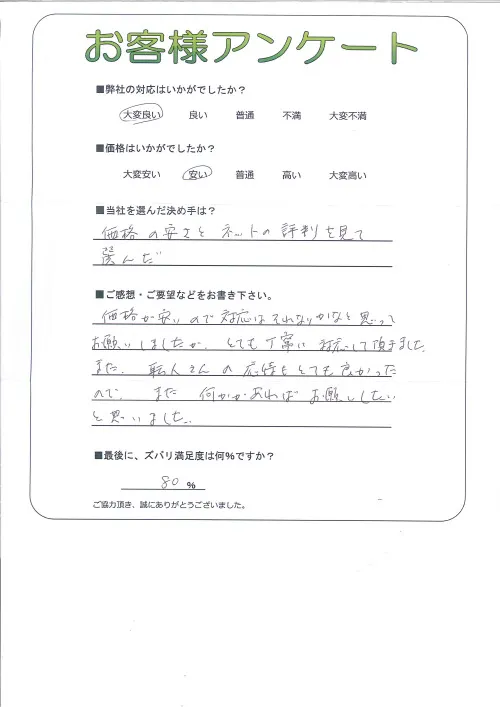 お客様アンケート
■弊社の対応はいかがでしたか？
大変良い 良い 普通 不満 大変不満
■価格はいかがでしたか？
大変安い 安い 普通 高い 大変高い
■当社を選んだ決め手は？
価格の安さとネットの評判を見て
選んだ
■ご感想・ご要望などをお書き下さい。
価格が安いので対応はそれなりかなと思って
お願いしましたが、とても丁寧に対応して頂きました。
また、職人さんの応待もとても良かった
ので、また何かあればお願いしたい
と思いました。
■最後に、ズバリ満足度は何%ですか？
80 %
ご協力頂き、誠にありがとうございました。